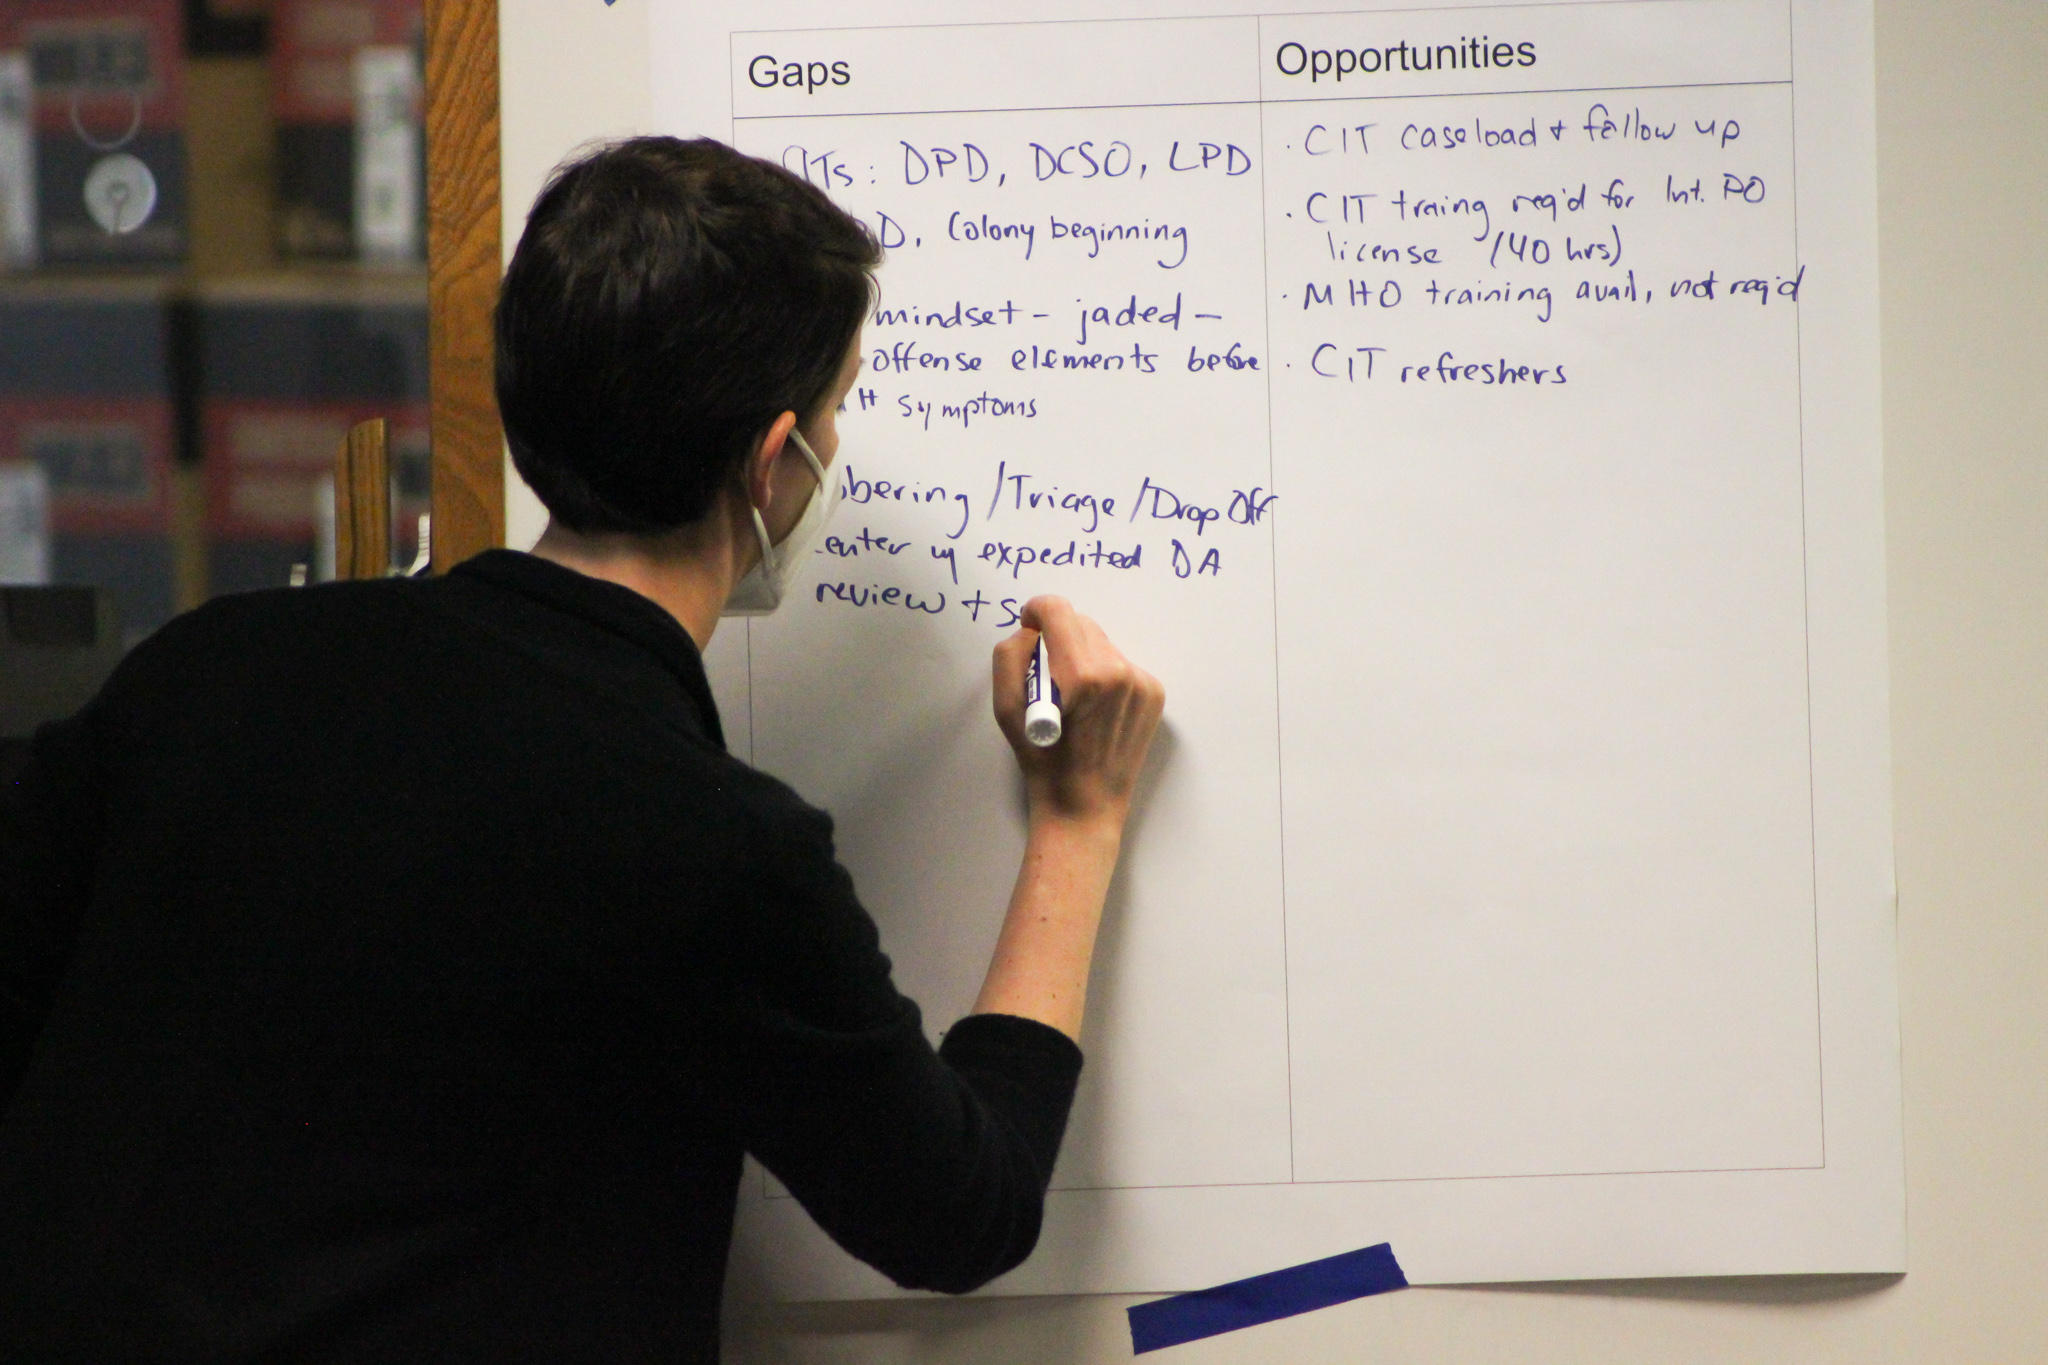 Gaps
Opportunities
CITs: DPD, DCSO, LPD
D, Colony beginning
mindset - jaded -
offense elements before
symptoms
/Triage/Drop Off
w/ expedited DA
review +
· CIT caseload + follow up
· CIT traing req'd for Int. PO
license (40 hrs)
· MHO training avail, not req'd
· CIT refreshers